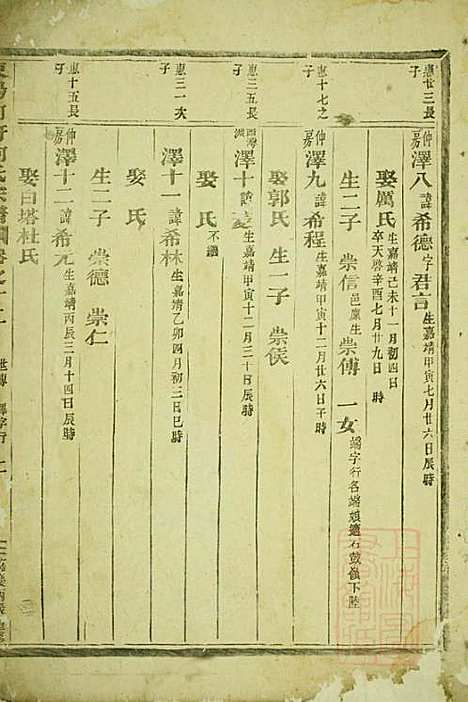 惠廿三長子
仲嘉 澤八 諱希德字君言 生嘉靖甲寅七月廿六日辰時
娶厲氏 生嘉靖己未十一月初四日 時
卒天啓辛酉七月廿九日 時
生二子 崇信 邑廩生 崇傅 一女 端字行各端 適石鼓嶺下陸
惠十七之子
仲嘉 澤九 諱希程 生嘉靖甲寅十二月廿六日子時
娶郭氏 生一子 崇俟
惠二五長子
澤十 諱 生嘉靖甲寅十二月三十日辰時
娶 氏 不識
惠三一次子
澤十一 諱希林 生嘉靖乙卯四月初三日巳時
娶 氏
生二子 崇德 崇仁
惠十五長子
仲嘉 澤十二 諱希元 生嘉靖丙辰三月十四日辰時
娶白塔杜氏